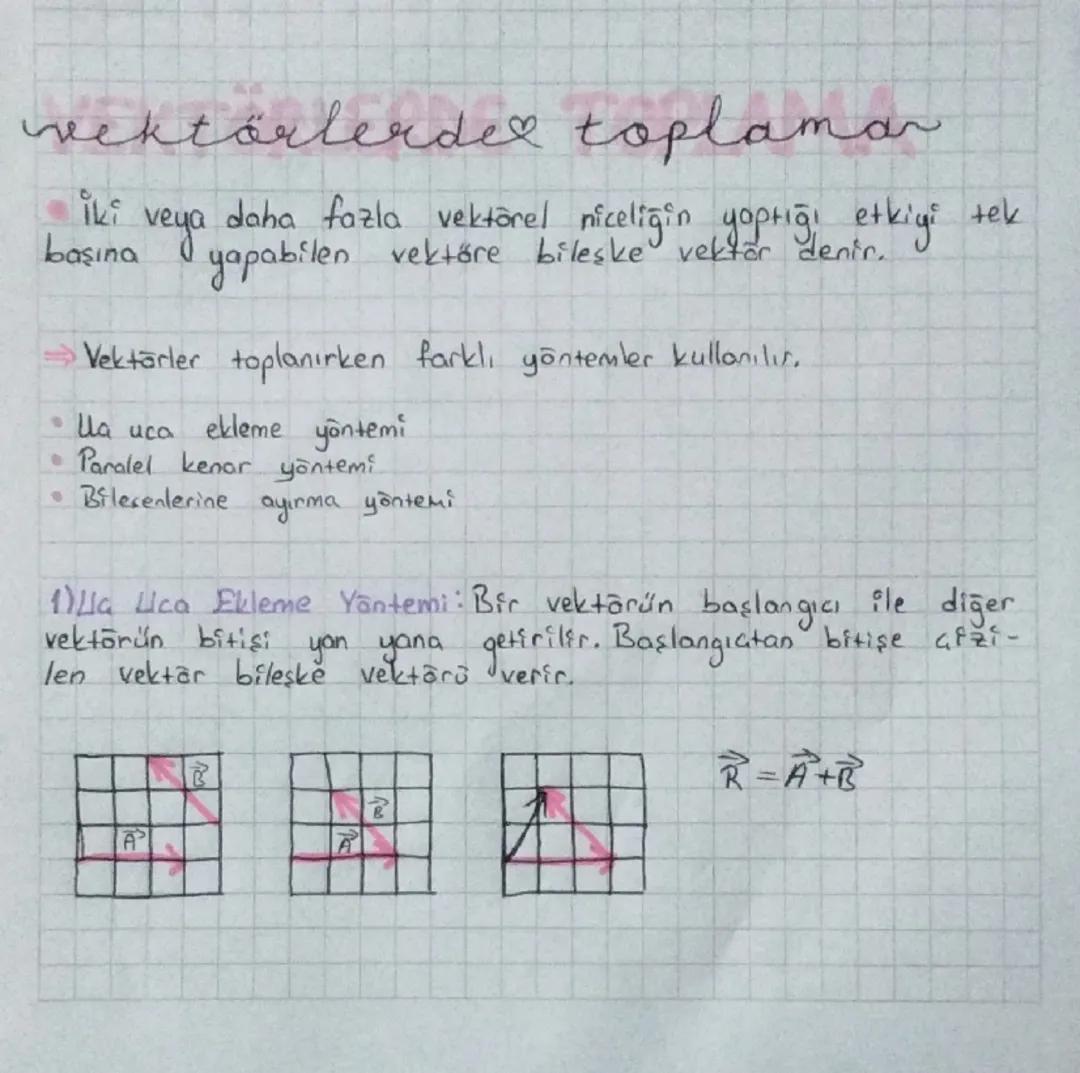 VEKTÖRLERDE TOPLAMA
vektörlerde toplama
İki veya daha fazla vektörel niceliğin yaptığı etkiyi tek
başına yapabilen vektöre bileşke vektör denir.
⇒ Vektörler toplanırken farklı yöntemler kullanılır.
• Uca uca ekleme yöntemi
• Paralel kenar yöntemi
• Bileşenlerine ayırma yöntemi
1) Uca Uca Ekleme Yöntemi: Bir vektörün başlangıcı ile diğer
vektörün bitişi yan yana getirilir. Başlangıctan bitişe çizi-
len vektör bileşke vektörü verir.
B⃗ B⃗ R⃗ = A⃗ + B⃗
A⃗ A⃗